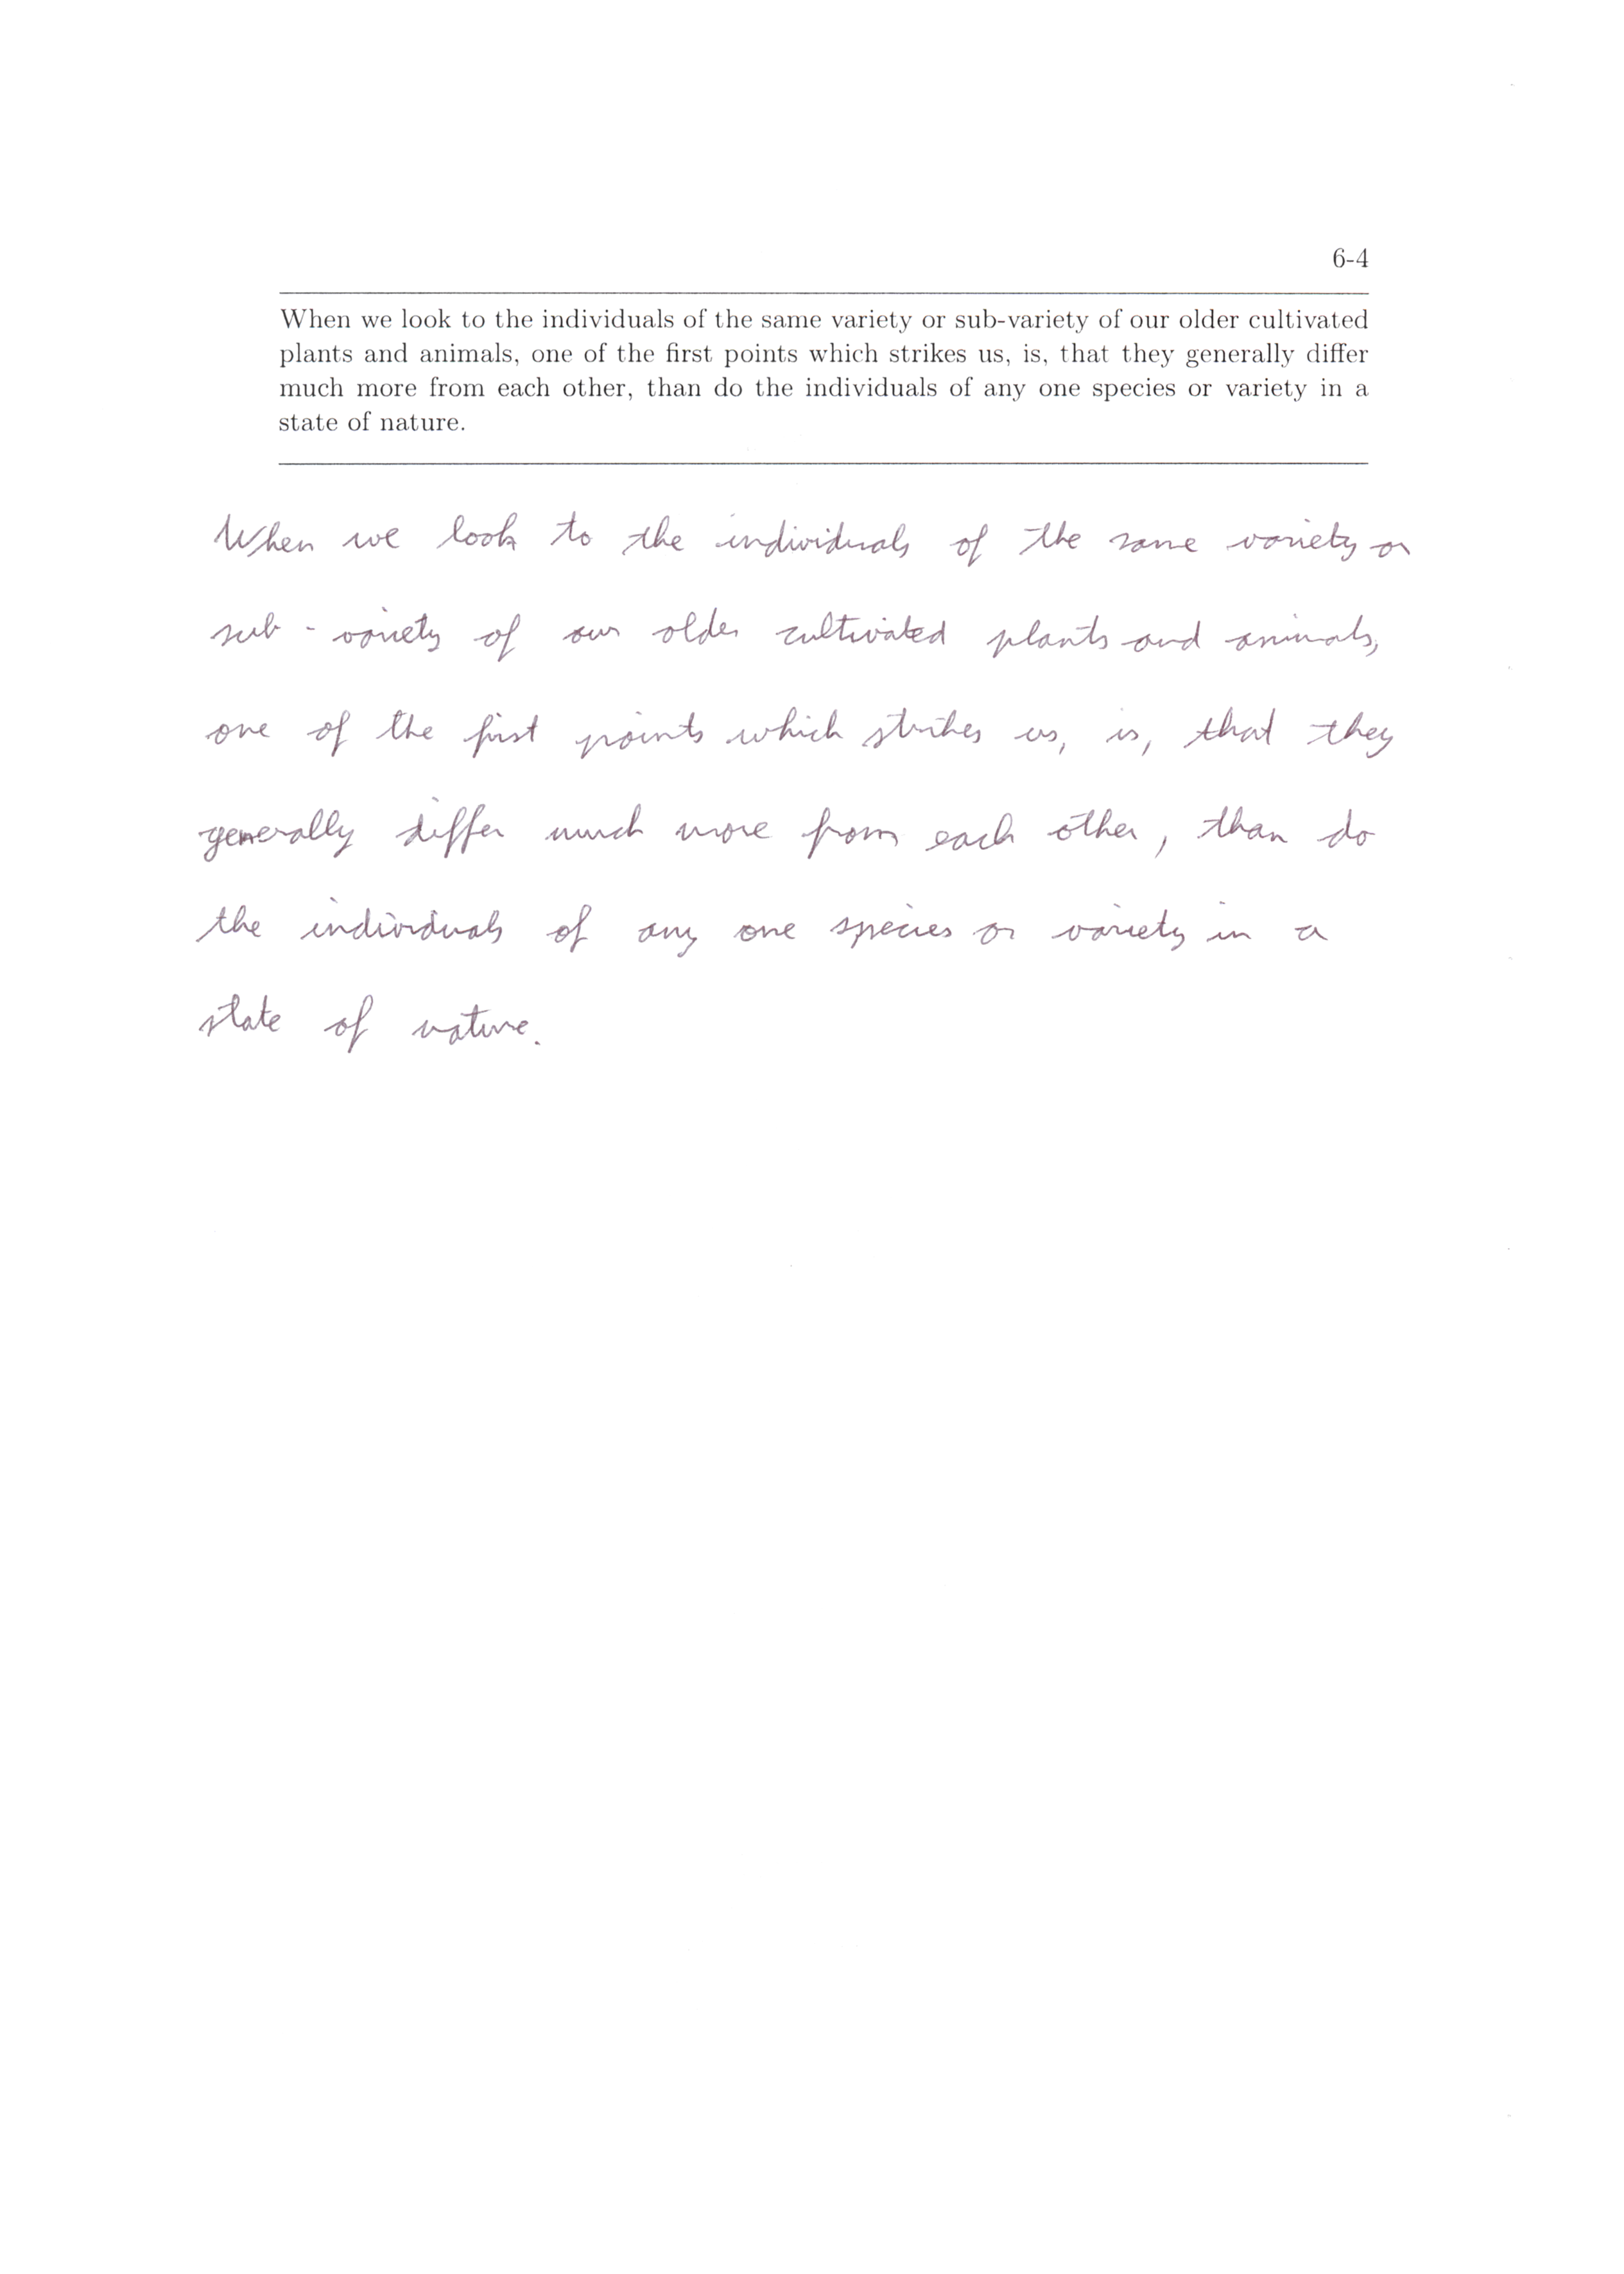 6-4
When we look to the individuals of the same variety or sub-variety of our older cultivated
plants and animals, one of the first points which strikes us, is, that they generally differ
much more from each other, than do the individuals of any one species or variety in a
state of nature.
When we look to the individuals of the same variety or
sub-variety of our older cultivated plants and animals,
one of the first points which strikes us, is, that they
generally differ much more from each other, than do
the individuals of any one species or variety in a
state of nature.